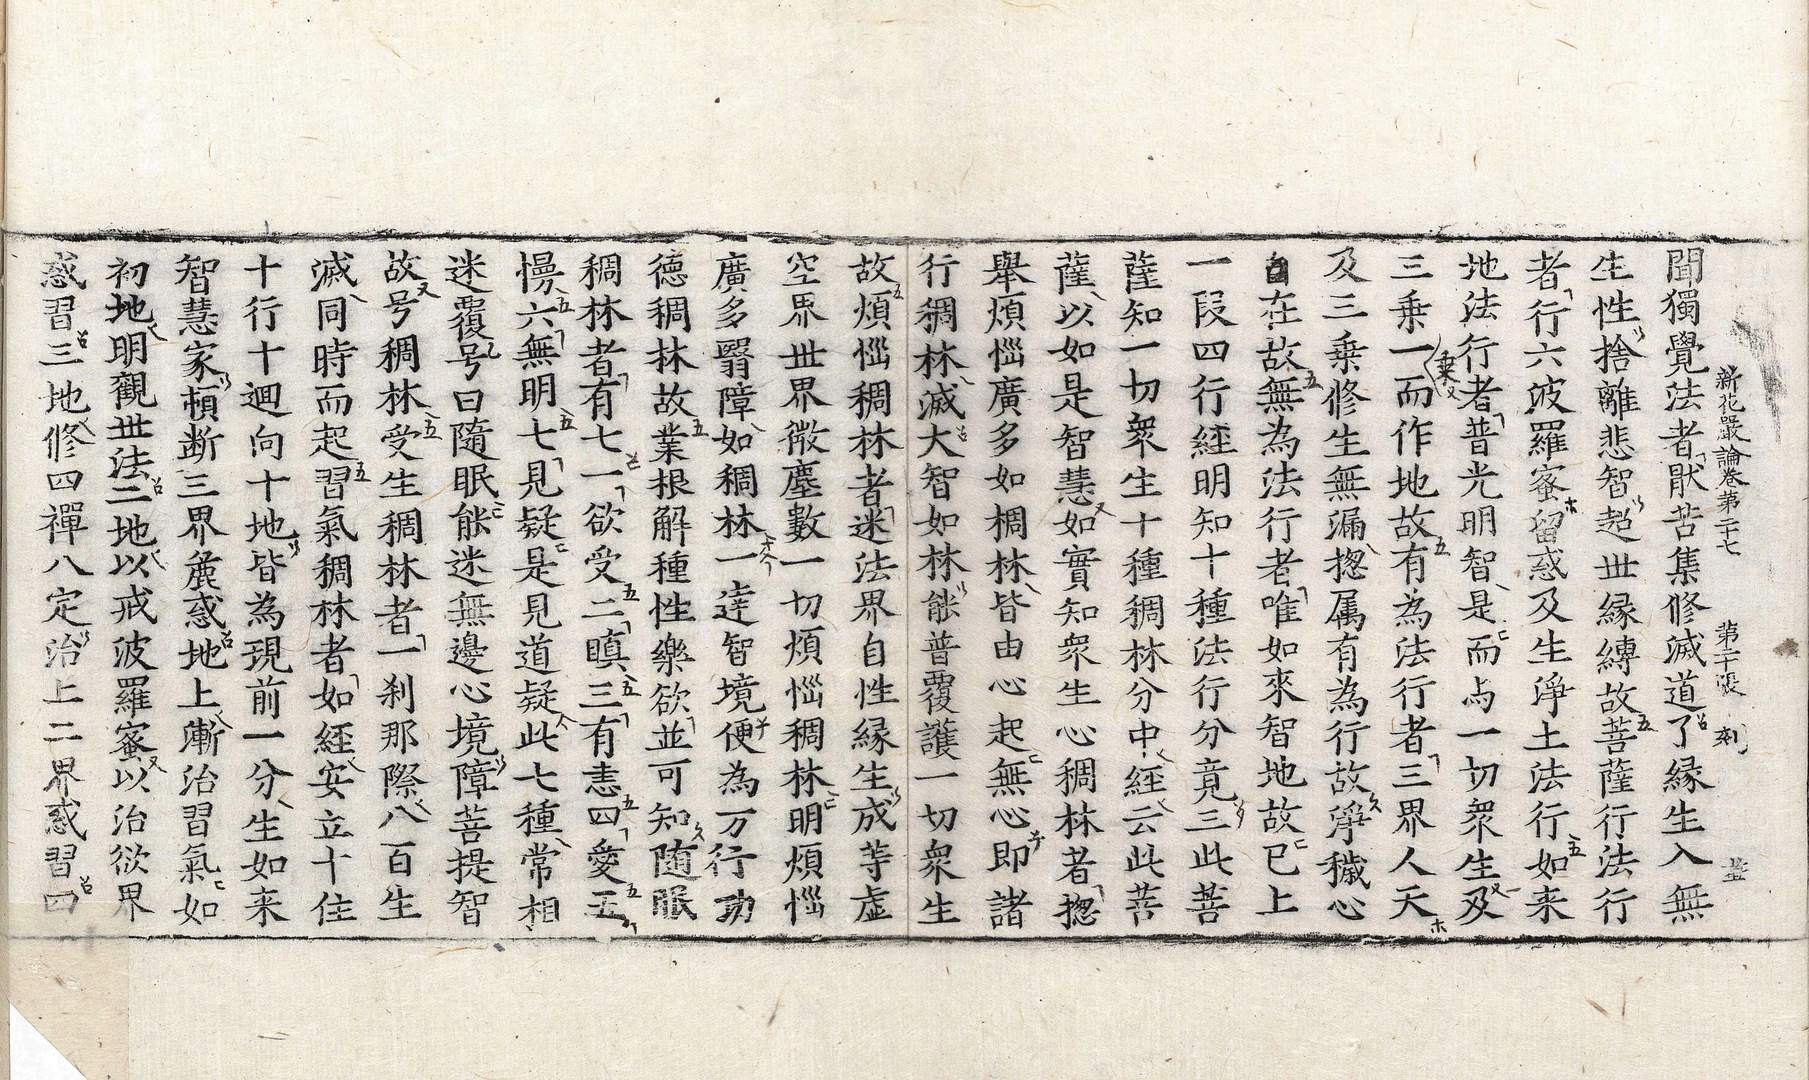 新花嚴論卷第二十七　第二十張　刻
聞獨覺法者猒苦集修滅道了緣生入無
生性捨離悲智超世緣縛故菩薩行法行
者行六波羅蜜留惑及生淨土法行如来
地法行者普光明智是而与一切衆生及
三乗一乗而作地故有為法行者三界人天
及三乗修生無漏揔属有為行故淨穢心
自在故無為法行者唯如來智地故已上
一段四行經明知十種法行分竟三此菩
薩知一切衆生十種稠林分中經云此菩
薩以如是智慧如實知衆生心稠林者揔
舉煩惱廣多如稠林皆由心起無心即諸
行稠林滅大智如林能普覆護一切衆生
故煩惱稠林者迷法界自性緣生成等虛
空界世界微塵數一切煩惱稠林明煩惱
廣多翳障如稠林一達智境便為万行功
德稠林故業根解種性樂欲並可知随眠
稠林者有七一欲受二瞋三有恚四愛五
慢六無明七見疑是見道疑此七種常相
迷覆号曰隨眠能迷無邊心境障菩提智
故号稠林受生稠林者一刹那際八百生
滅同時而起習氣稠林者如經安立十住
十行十迴向十地皆為現前一分生如来
智慧家頓断三界麁惑地上漸治習氣如
初地明觀世法二地以戒波羅蜜以治欲界
惑習三地修四禪八定治上二界惑習四